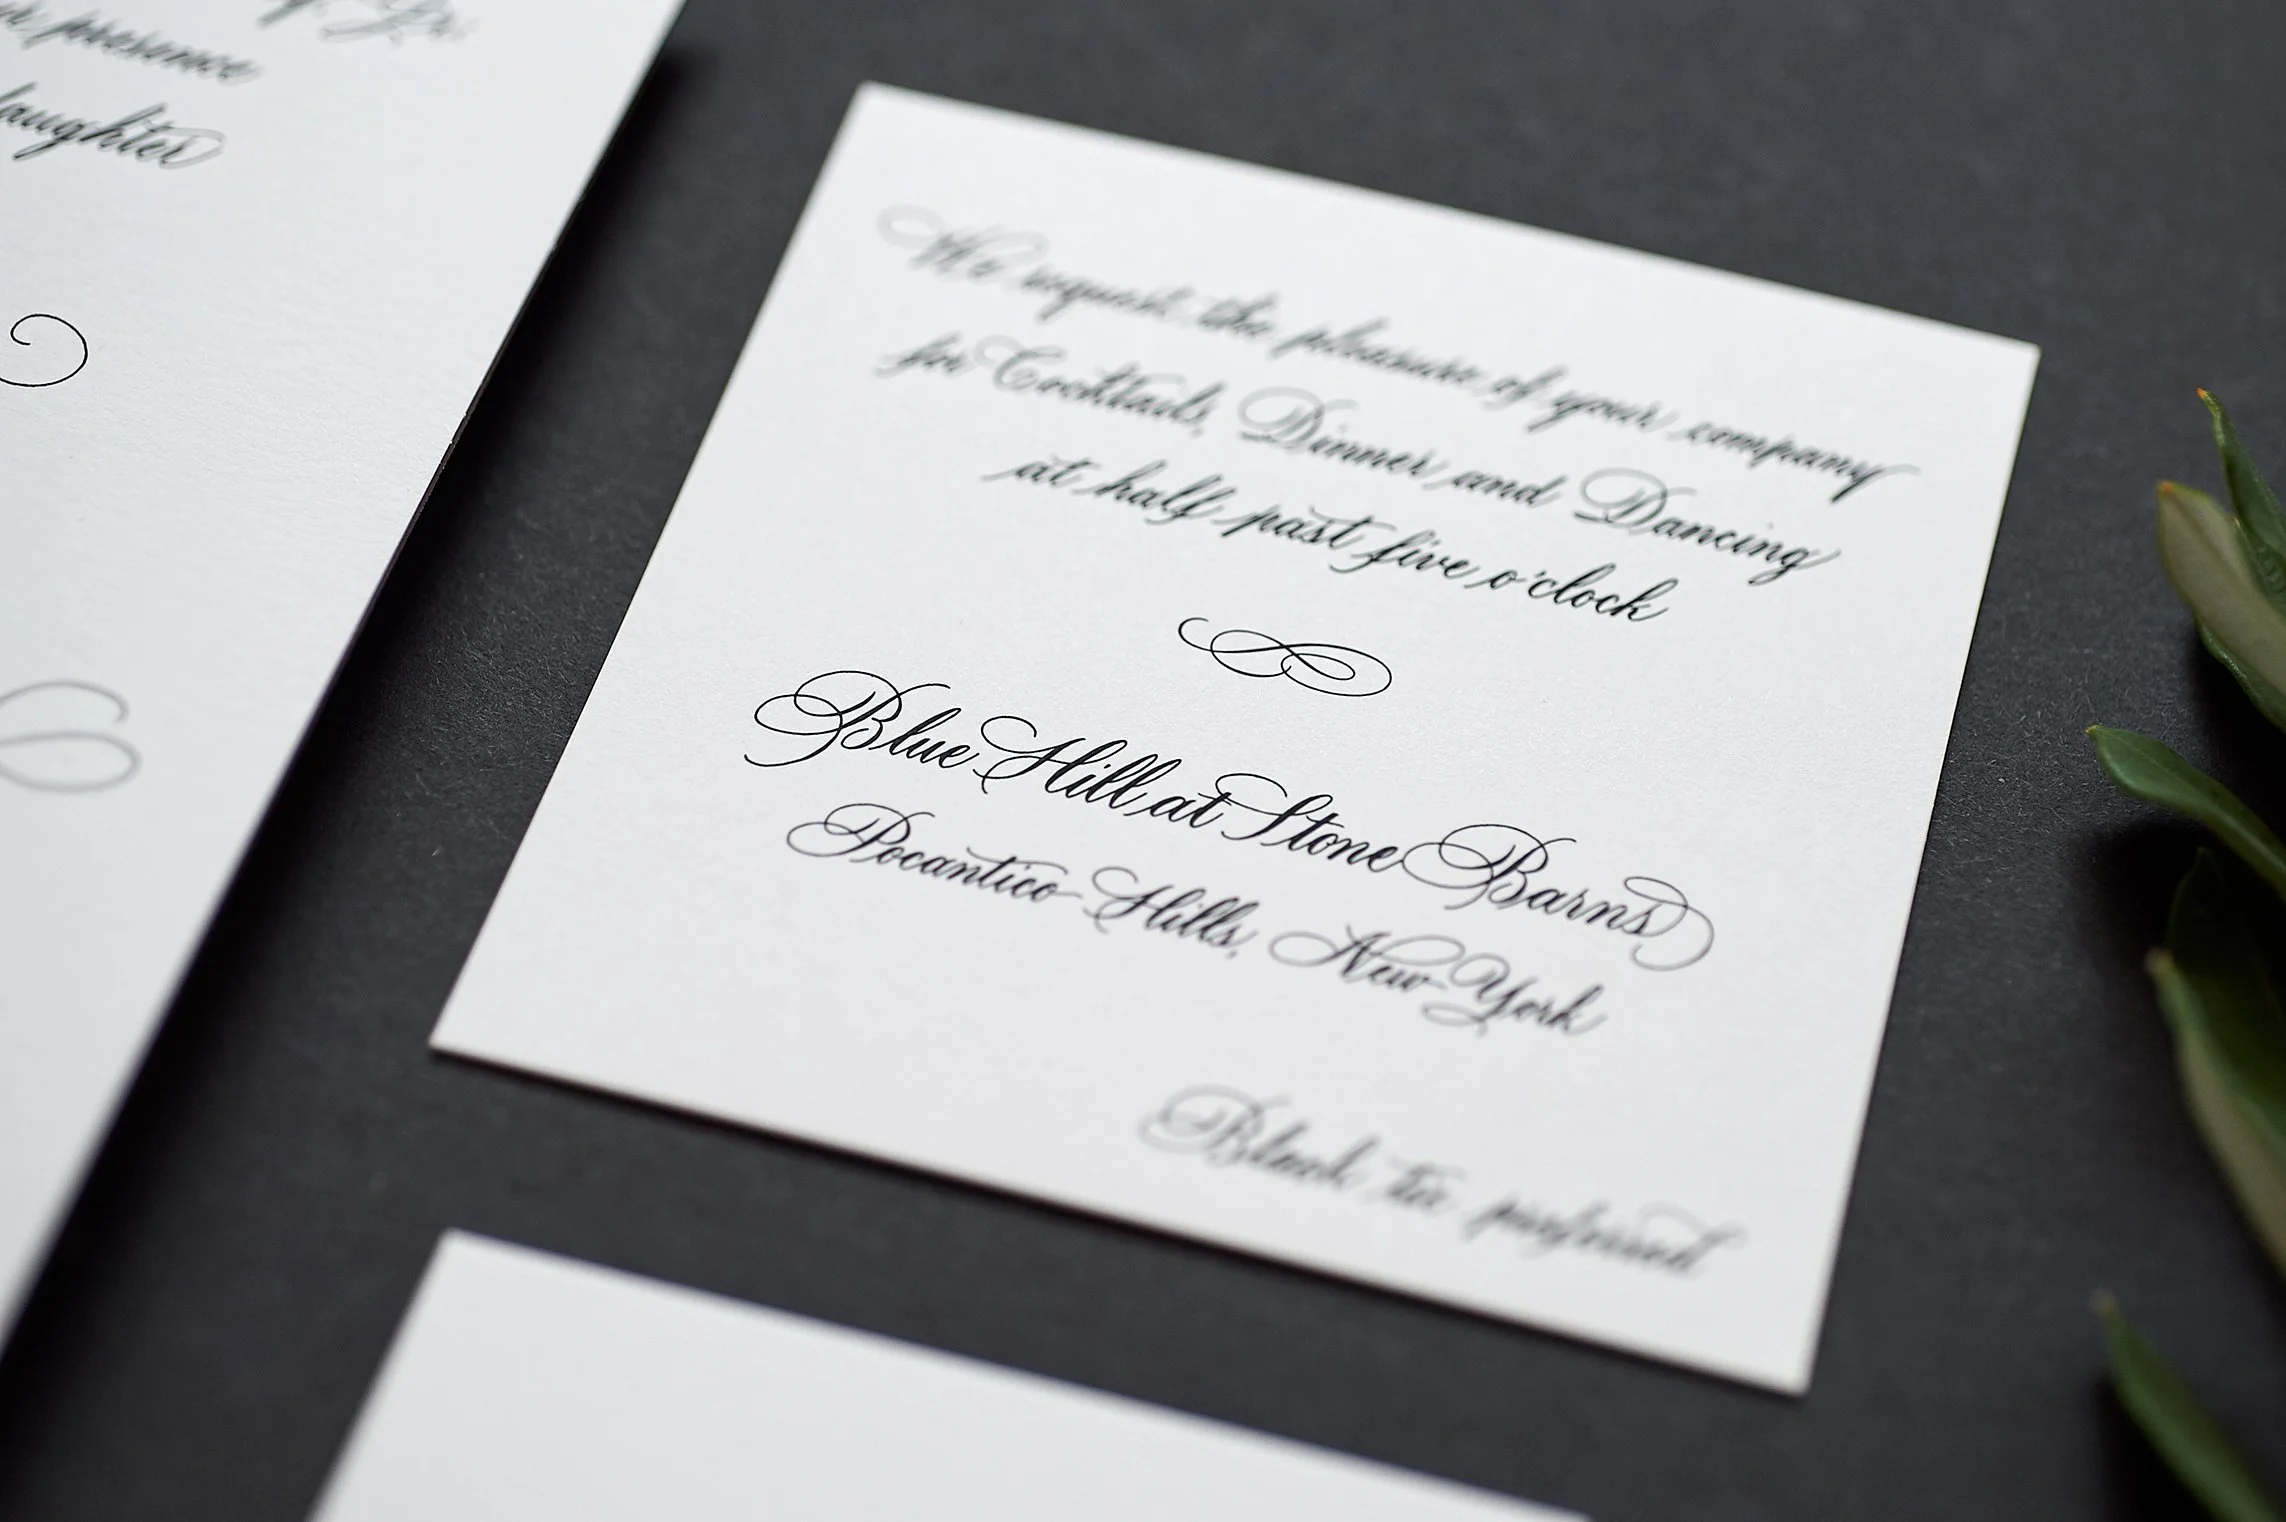 presence
We request the pleasure of your company
for Cocktails, Dinner and Dancing
at half past five o'clock
Blue Hill at Stone Barns
Pocantico Hills, New York
Black tie preferred